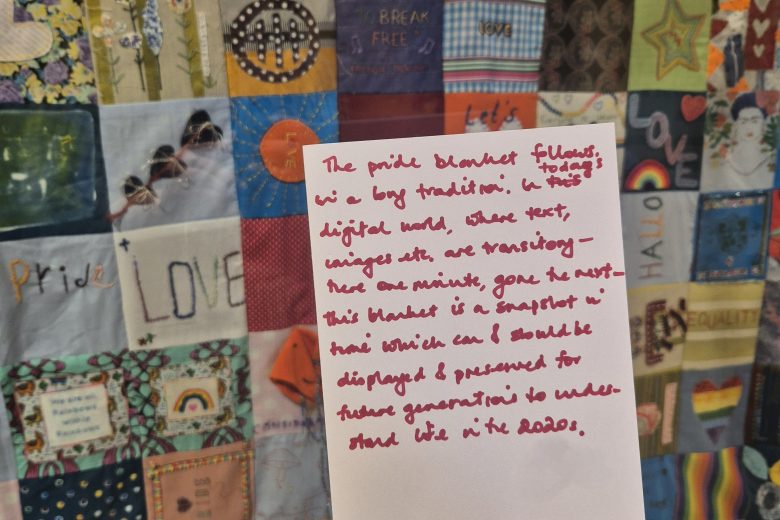 BREAK
FREE
LOVE
Let's
LOVE
HALLO
Pride
LOVE
EQUALITY
We are all
Rainbows
The pride blanket follows.
in a long tradition. In today's
digital world, where text,
images etc. are transitory—
here one minute, gone the next—
this blanket is a snapshot in
time which can & should be
displayed & preserved for
future generations to under-
stand life in the 2020s.